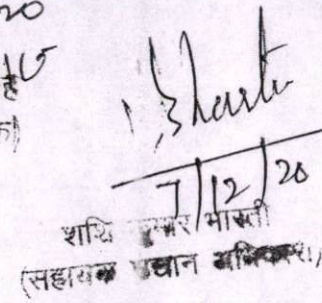 20
है
Bharti
7/12/20
शशि कुमार भारती
(सहायक उद्यान अधिकारी)